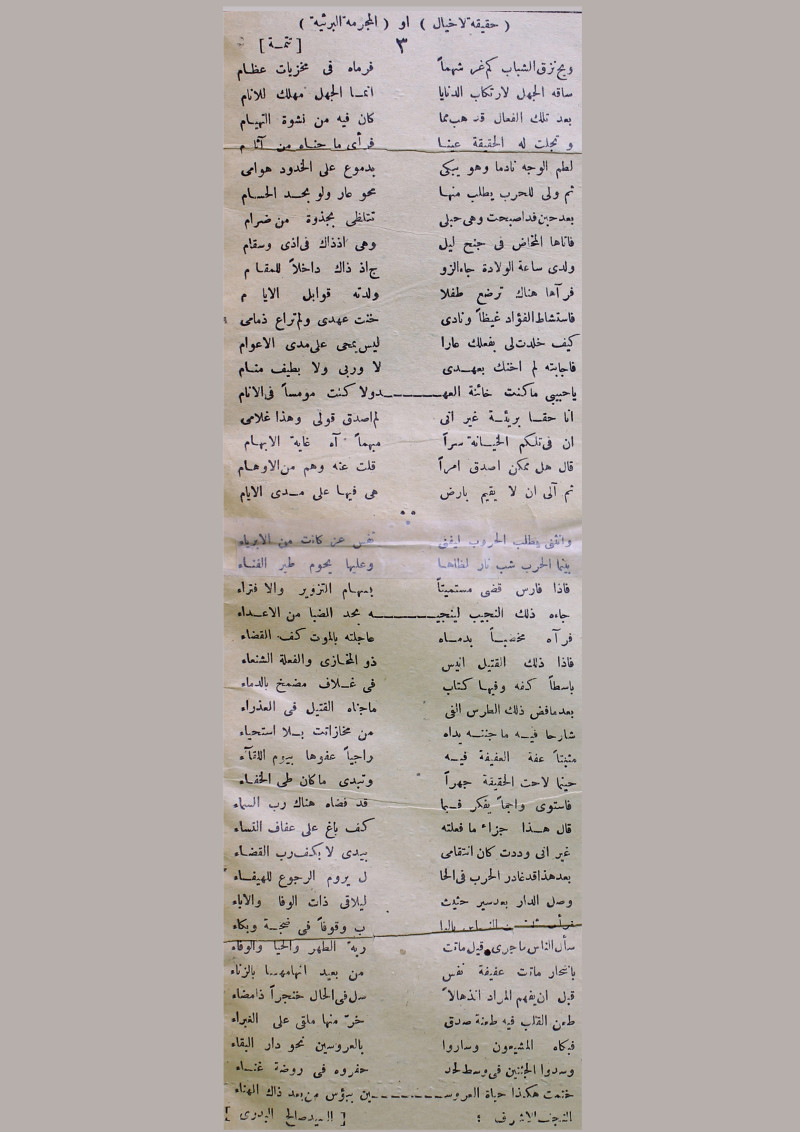 ( حقيقة لا خيال ) او ( المجرمة البرئية )
٣ [ تتمـة ]
ويح نزق الشباب كم غر شهماً فرماه فى مخزيات عظام
ساقه الجهل لارتكاب الدنايا انمـا الجهل مهلك للانام
بعد تلك الفعال قد هب مما كان فيه من نشوة التهيـام
و تجلت له الحقيقة عينـا فرأى ما جناه من آثا م
لطم الوجه نادما وهو يبكى بدموع على الخدود هوامى
ثم ولى للحرب يطلب منهـا محو عار ولو بحـد الحسـام
بعد حين قد اصبحت وهى حبلى تتلظى بجذوة من ضرام
فاتاها المخاض فى جنح ليل وهى اذذاك فى اذى وسقام
ولدى ساعة الولادة جاء الزو ج اذ ذاك داخلاً للمقـا م
فرآها هناك ترضع طفلا ولدته قوابل الايا م
فاستشاط الفؤاد غيظاً ونادى خنت عهدى ولم تراع ذمامى
كيف خلدت لى بفعلك عارا ليس يمحى على مدى الاعوام
فاجابته لم اخنك بعهـدى لا وربى ولا بطيف منـام
ياحبيبى ماكنت خائنة العهـــــد ولا كنت مومساً فى الانام
انا حقـا بريئـة غير انى لم اصدق قولى وهذا غلامى
ان فى تلكم الخيـانة سراً مبهماً آه غاية الابهـام
قال هل ممكن اصدق امراً قلت عنه وهم من الاوهـام
ثم آلى ان لا يقيم بارض هى فيهـا على مـدى الايام
وانثنى يطلب الحروب ليفنى عن كانت من الابرياء
بينما الحرب شب نار لظاهـا وعليها يحوم طير الفنـاء
فاذا فارس قضى مستميتاً بسهـام التزوير والا فتراء
جاءه ذلك النجيب لينجيـــــــه بحد الضبا من الاعـداء
فرآه مخضبـاً بدمـاه عاجلته بالموت كف القضاء
فاذا ذلك القتيل انيس ذو المخازى والفعلة الشنعاء
باسطاً كفه وفيهـا كتاب فى غـلاف مضمخ بالدماء
بعد مافض ذلك الطرس الفى ماجناه القتيل فى العذراء
شارحا فيـه ما جنتـه يداه من مخازاتت بـلا استحياء
مثبتاً عفة العفيفة فيـه راجياً عفوها بيوم اللقـآء
حينما لاحت الحقيقة جهراً وتبدى ماكان طى الخفـاء
فاستوى واجماً يفكر فـيما قد قضاه هناك رب السماء
قال هـذا جزاء ما فعلته كف باغ على عفاف النساء
غير انى وددت كان انتقامى بيدى لا بكف رب القضـاء
بعد هذا قد غادر الحرب فى الحا ل يروم الرجوع للهيفـاء
وصل الدار بعد سير حثيث ليلاقى ذات الوفا والاباء
فرأى الناس بالبا ب وقوفاً فى ضجـة وبكاء
سأل الناس ماجرى قيل ماتت ربة الطهر والحيا والوفاء
بانتحار ماتت عفيفة نفس من بعيد اتهامهـا بالزناء
قبل ان يفهم المراد انذهالاً سل فى الحال خنجراً ذا مضاء
طعن القلب فيه طعنة صدق خرّ منها ملقى على الغبراء
فبكاه المشيعون وساروا بالعروسين نحو دار البقاء
وسدوا الجثتين فى وسط لحد حفروه فى روضة غنـاء
ختمت هكذا حياة العروســــــين ببؤس من بعد ذاك الهناء
النجف الاشرف : [ السيد صالح البدرى ]